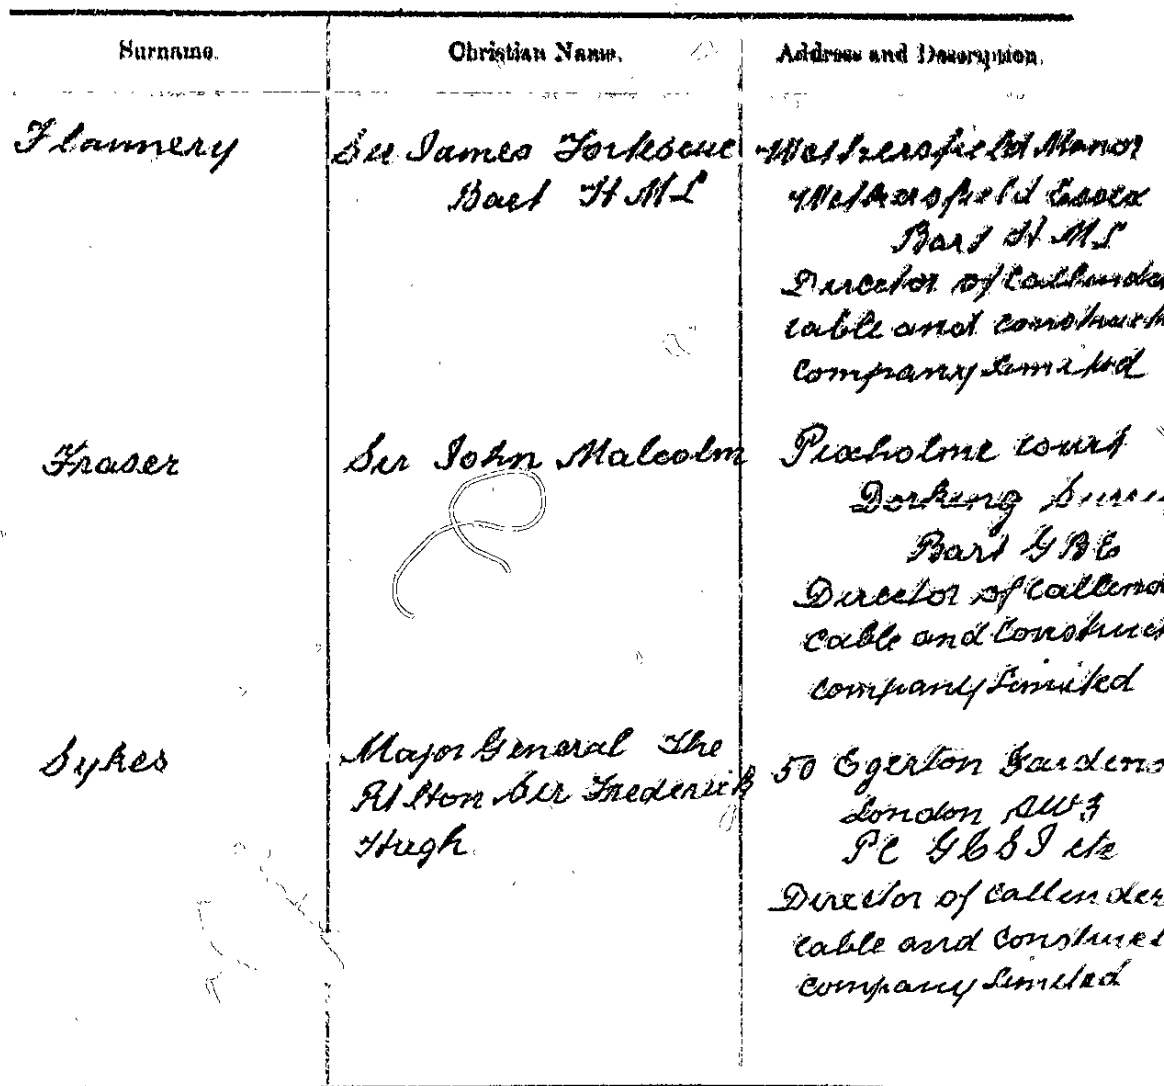 Surname. Christian Name. Address and Description.
Flannery Sir James Fortescue Wethersfield Manor
Bart H.M.L Wethersfield Essex
Bart H.M.L
Director of Callender
cable and construct
company Limited
Fraser Sir John Malcolm Pixholme court
Dorking Surrey
Bart G B E
Director of Callend
Cable and Construct
company Limited
Sykes Major General The 50 Egerton Gardens
Rt Hon Sir Frederick London SW3
Hugh. PC GCSI etc
Director of Callender
Cable and Construct
company Limited